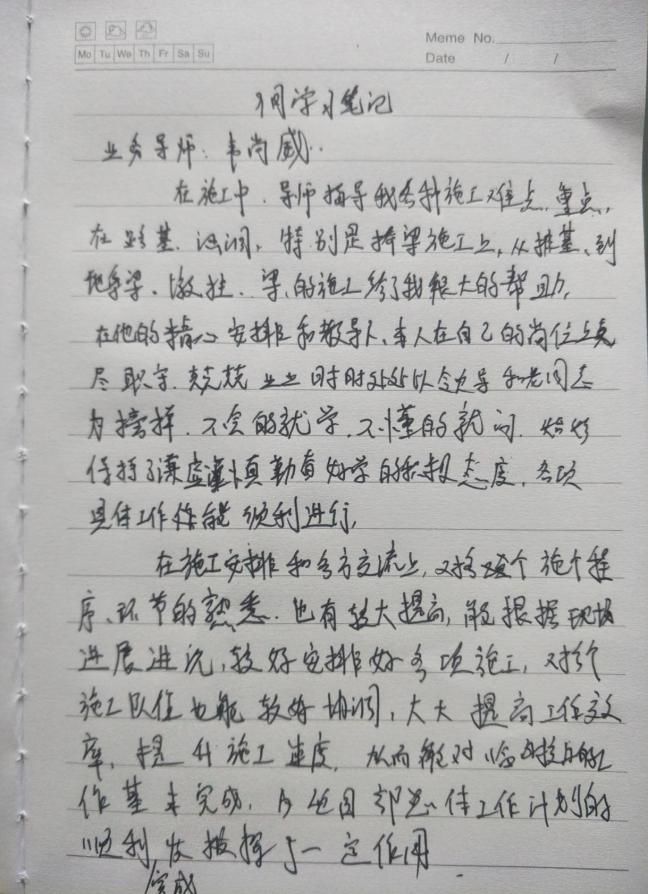 Meme No.
Mo Tu We Th Fr Sa Su
Date / /
3月学习笔记
业务导师：韦尚威
在施工中，导师指导我各种施工难点、重点，
在路基、涵洞，特别是桥梁施工上，从桩基、到
地系梁、墩柱、梁，的施工给了我很大的帮助，
在他的精心安排和教导下，本人在自己的岗位上
尽职守，兢兢业业时时处处以领导和老同志
为榜样，不会的就学，不懂的就问，始终
保持了谦虚谨慎勤奋好学的积极态度，各项
具体工作能顺利进行，
在施工安排和各方交流上，对整个施工程
序、环节的熟悉，也有较大提高，能根据现场
进展进况，较好安排好各项施工，对个
施工队伍也能较好协调，大大提高工作效
率，提升施工速度，从而能对的工
作基本完成，为项目部总体工作计划的
顺利完成发挥了一定作用